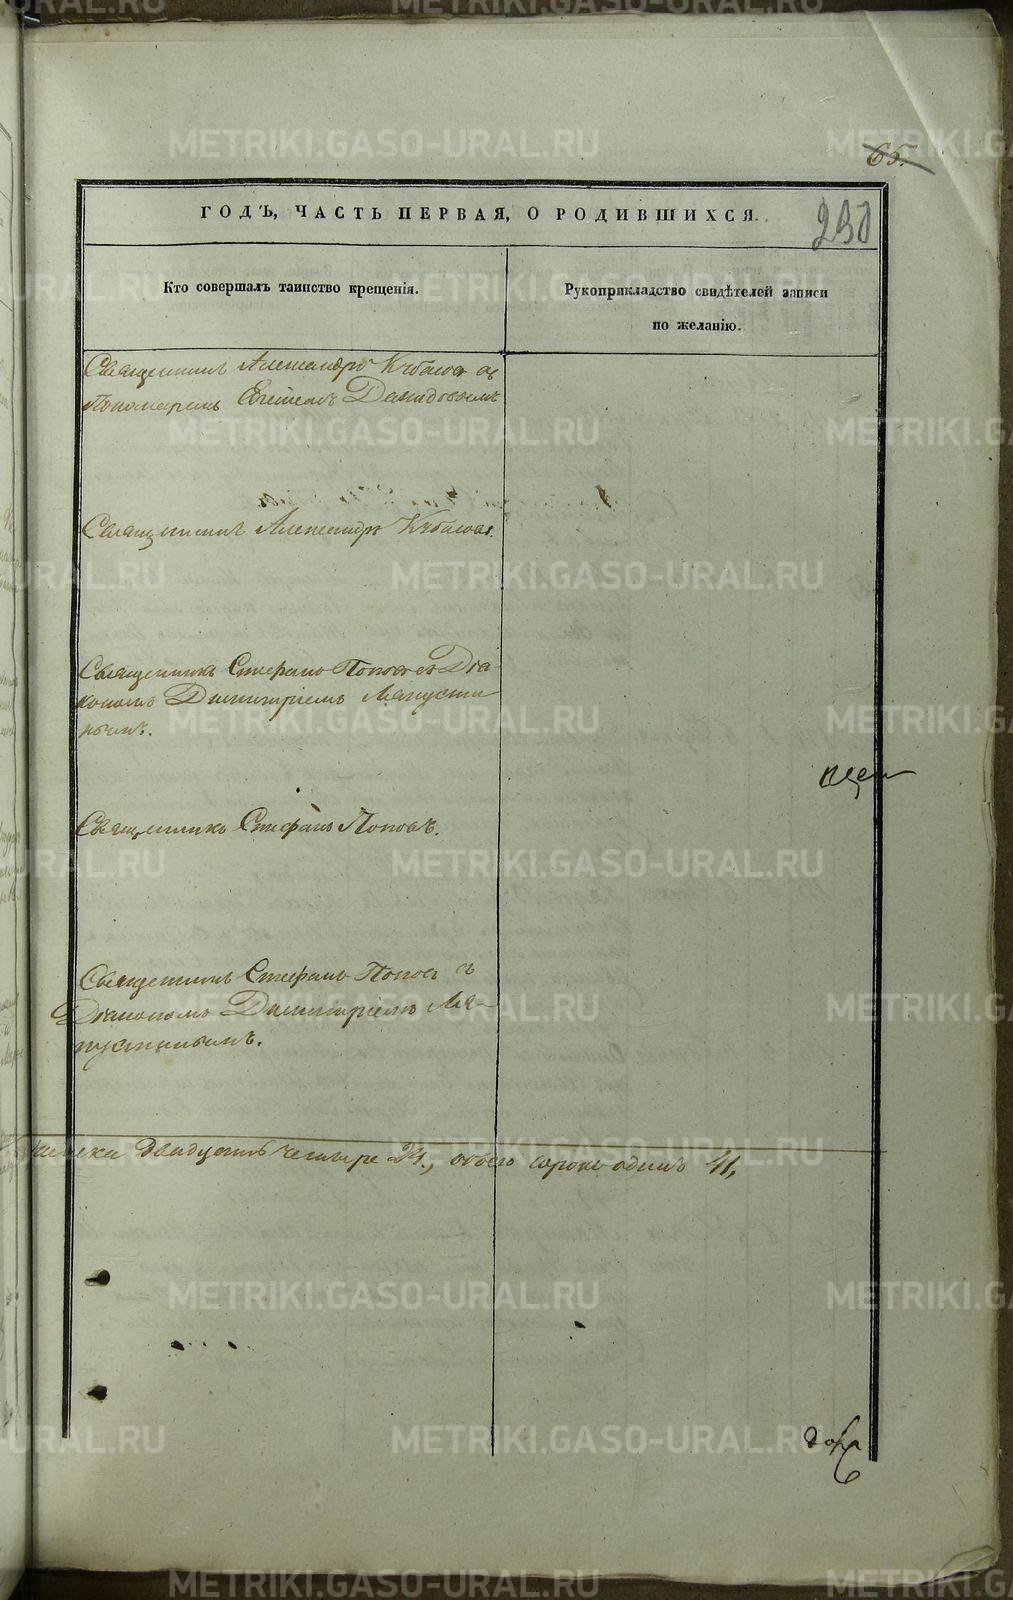 65.
ГОДЪ, ЧАСТЬ ПЕРВАЯ, О РОДИВШИХСЯ.
230
Кто совершалъ таинство крещенія.
Рукоприкладство свидѣтелей записи
по желанію.
Священникъ Александръ съ
Пономаремъ Давидовымъ
Священникъ Александръ
Священникъ Стефанъ Поповъ съ Діа
кономъ Димитріемъ Мапусти
нымъ.
Священникъ Стефанъ Поповъ.
Священникъ Стефанъ Поповъ съ
Діакономъ Димитріемъ Ма-
пустинымъ.
двадцать четыре 24, обоего сорокъ одинъ 41,
METRIKI.GASO-URAL.RU